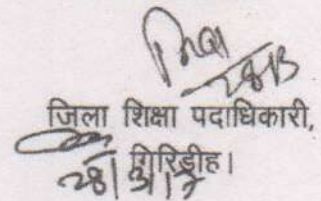 28/3
जिला शिक्षा पदाधिकारी,
गिरिडीह।
28/3/17